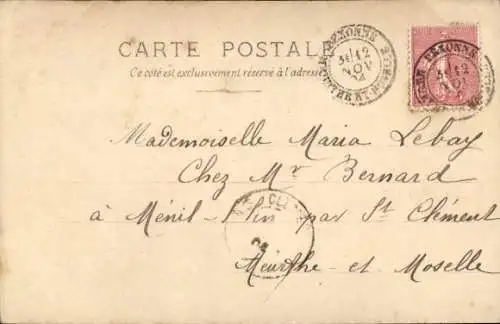 CARTE POSTALE
Ce côté est exclusivement réservé à l'adresse
PEXONNE
3E / 12
NOV
PEXONNE
3E / 12
NOV
Mademoiselle Maria Lebay
Chez Mr Bernard
à Ménil-Flin par St Clément
Meurthe et Moselle